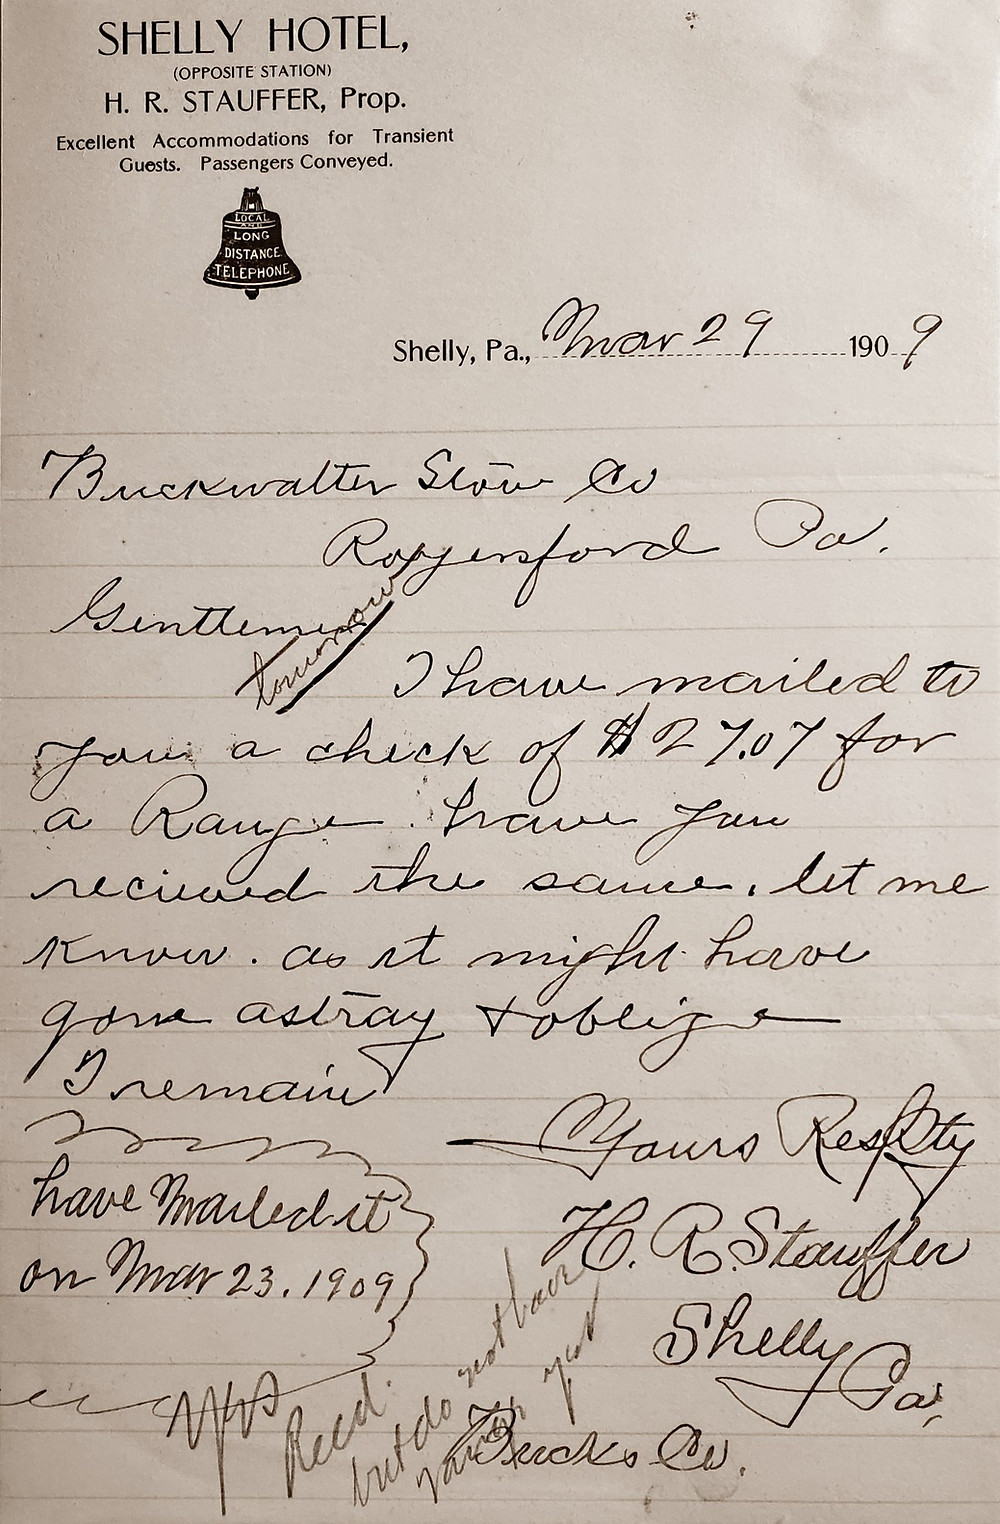 SHELLY HOTEL,
(OPPOSITE STATION)
H. R. STAUFFER, Prop.
Excellent Accommodations for Transient
Guests. Passengers Conveyed.
LOCAL
AND
LONG
DISTANCE
TELEPHONE
Shelly, Pa., Mar 29 1909
Buckwalter Stove Co
Royersford Pa.
Gentlemen
tomorrow
I have mailed to
you a check of $27.07 for
a Range. have you
recieved the same. let me
know. as it might have
gone astray & oblige
I remain
Yours Resptty
have Mailed it
on Mar 23. 1909
H. R. Stauffer
Shelly
Pa,
Bucks Co.
Recd.
but do not have
yet